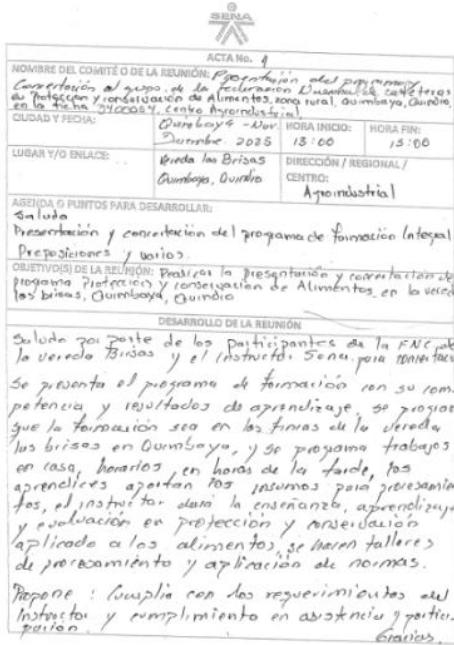 SENA
ACTA No. 1
NOMBRE DEL COMITÉ O DE LA REUNIÓN: Presentación del programa y
Concertación al grupo de la Federación Nacional de cafeteros
en Protección y conservación de Alimentos, zona rural, Quimbaya, Quindio,
en la ficha Centro Agroindustrial
CIUDAD Y FECHA:
Quimbaya - Nov.
Diciembre 2025
HORA INICIO:
13:00
HORA FIN:
15:00
LUGAR Y/O ENLACE:
Vereda las Brisas
Quimbaya, Quindio
DIRECCIÓN / REGIONAL /
CENTRO:
Agroindustrial
AGENDA O PUNTOS PARA DESARROLLAR:
Saludo
Presentación y concertación del programa de formación Integral
Preposiciones y varios.
OBJETIVO(S) DE LA REUNIÓN: Realizar la presentación y concertación de
programa Protección y conservación de Alimentos, en la vered
las brisas, Quimbaya, Quindio
DESARROLLO DE LA REUNIÓN
Saludo por parte de los participantes de la FNC, de
la vereda Brisas y el instructor Sena, para
Se presenta el programa de formación con su com
petencia y resultados de aprendizaje, se program
que la formación sea en las fincas de la vereda
las brisas en Quimbaya, y se programa trabajos
en casa, horarios, en horas de la tarde, los
aprendices aportan los insumos para procesamien
tos, el instructor dará la enseñanza, aprendizaje
y evaluación en protección y conservación
aplicado a los alimentos, se hacen talleres
de procesamiento y aplicación de normas.
Propone: Cumplir con los requerimientos del
Instructor y cumplimiento en asistencia y partici
pación.
Gracias.